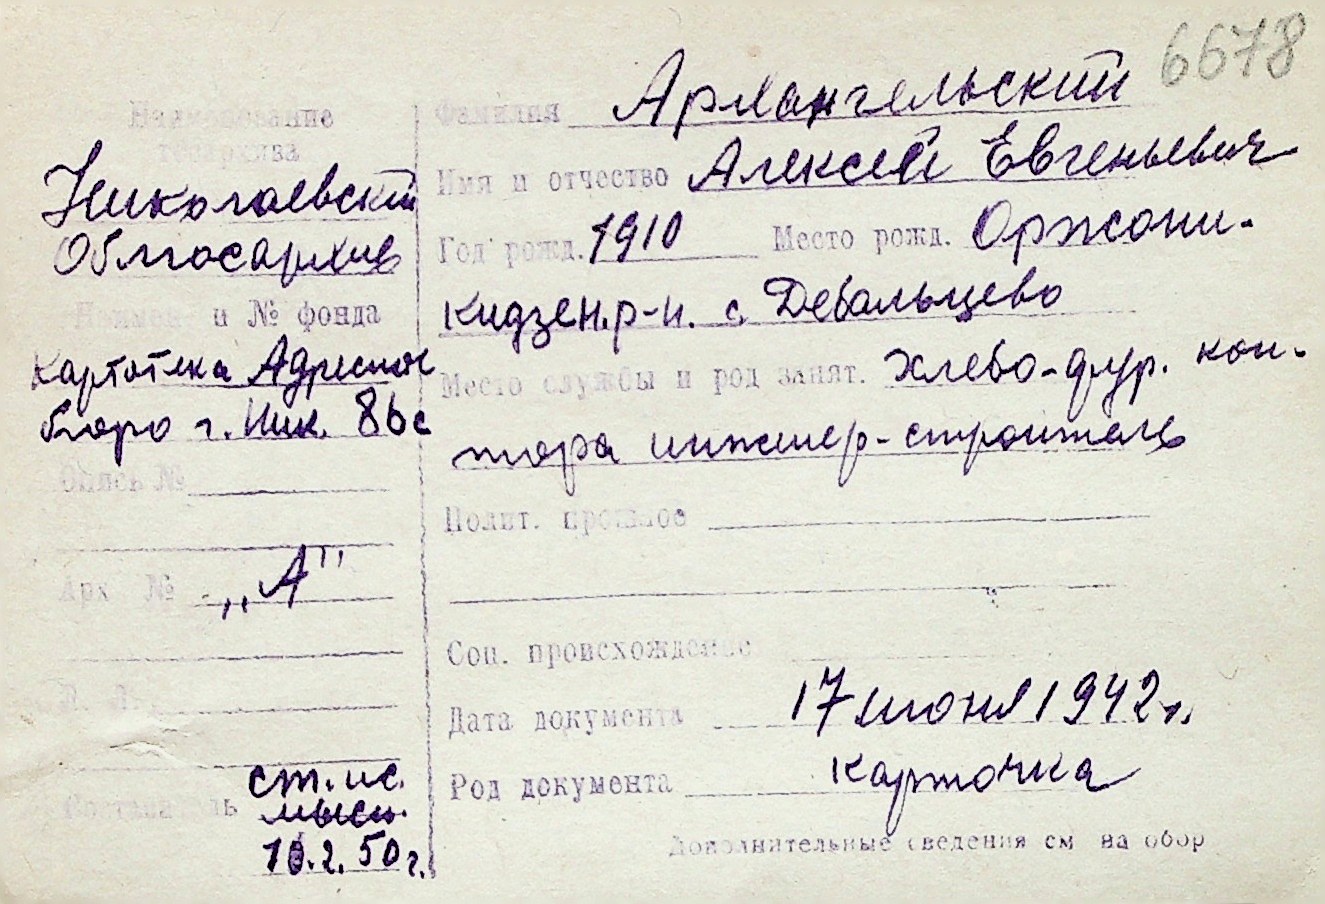 6678
Наименование
госархива
Николаевский
Облгосархив
Наимен. и № фонда
Картотека Адресное
бюро г. Ник. 86с
Опись №
Арх №
„А"
Составитель ст. ис.
10.2.50 г.
Фамилия Архангельский
Имя и отчество Алексей Евгеньевич
Год рожд. 1910 Место рожд. Оржони-
кидзен. р-н. с. Дебальцево
Место службы и род занят. Хлебо-фур. кон-
тора инженер-строитель
Полит. прошлое
Соц. происхождение
Дата документа 17 июня 1942 г.
Род документа карточка
Дополнительные сведения см на обор